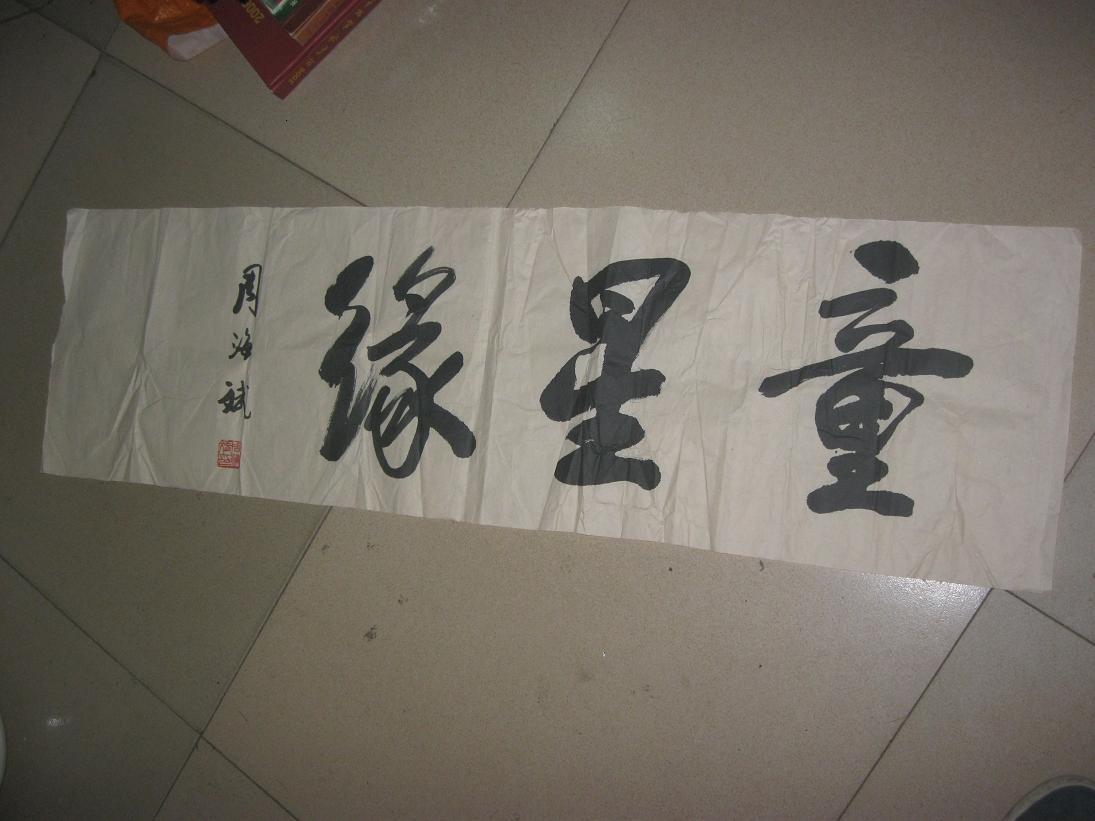 童星缘
周海斌